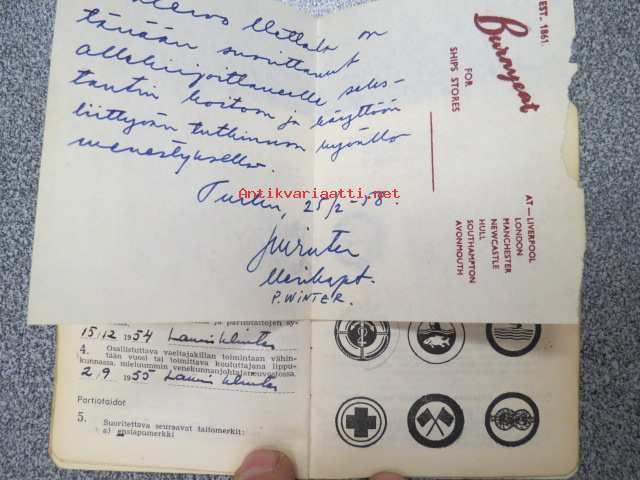 on
tänään suorittanut
allekirjoittaneelle seks-
tantin hoitoon ja käyttöön
liittyvän tutkinnon hyvällä
menestyksellä.
Turku, 25/2 -58.
Merikapt.
P. WINTER.
EST. 1861.
Burnyeat
FOR
SHIPS STORES
AT — LIVERPOOL
LONDON
MANCHESTER
NEWCASTLE
HULL
SOUTHAMPTON
AVONMOUTH
Antikvariaatti.net
ja partiotaitojen sy-
15/12 1954 Lauri
4. Osallistuttava vaeltajakillan toimintaan vähin-
tään vuosi tai toimittava kouluttajana lippu-
kunnassa, mieluummin venekunnanjohtajaneuvostossa.
2/9 1955 Lauri
Partiotaidot
5. Suoritettava seuraavat taitomerkit:
a) ensiapumerkki